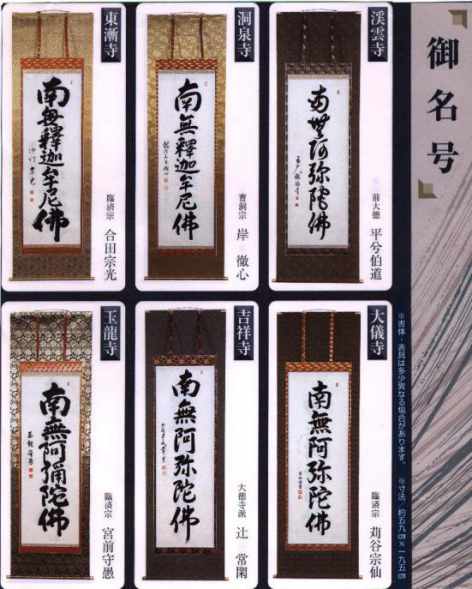 御名号
渓雲寺
南無阿弥陀佛
前大徳 平兮伯道
洞泉寺
南無釋迦牟尼佛
曹洞宗 岸 徹心
東漸寺
南無釋迦牟尼佛
臨済宗 合田宗光
大儀寺
南無阿弥陀佛
臨済宗 苅谷宗仙
吉祥寺
南無阿弥陀佛
大徳寺派 辻 常閑
玉龍寺
南無阿彌陀佛
臨済宗 宮前守愚
※書体・表具は多少異なる場合があります。 ※寸法／約五九cm×一九五cm